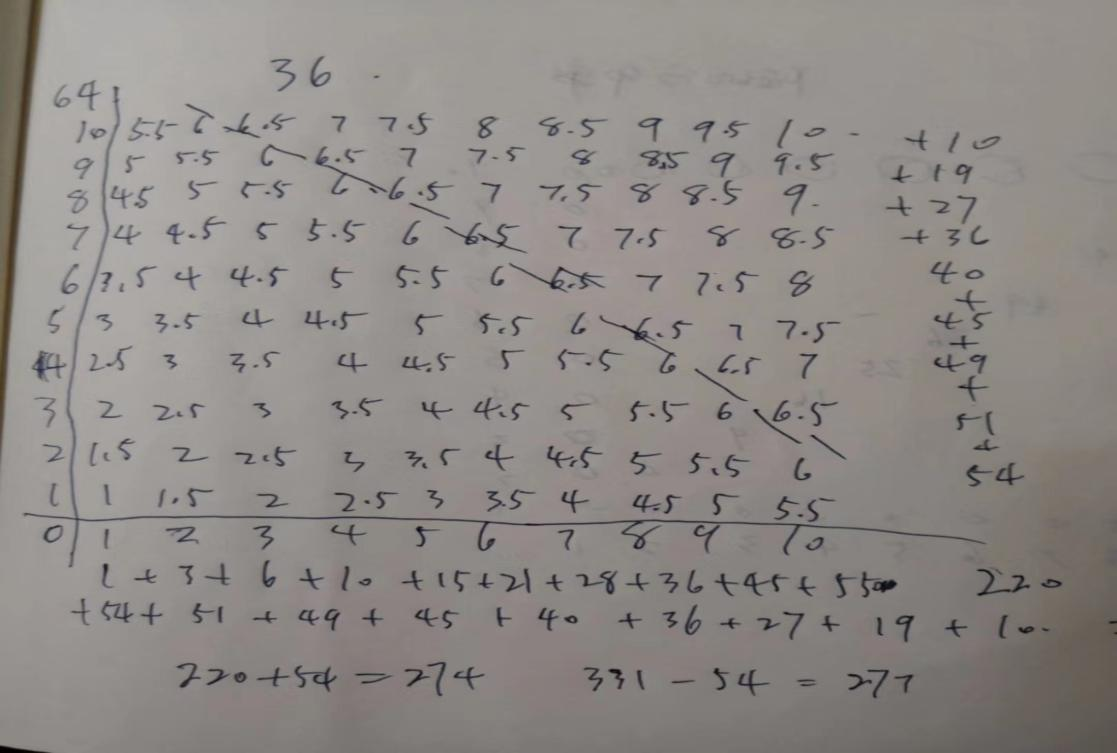 36 .
64
10 5.5 6 6.5 7 7.5 8 8.5 9 9.5 10 +10
9 5 5.5 6 6.5 7 7.5 8 8.5 9 9.5 +19
8 4.5 5 5.5 6 6.5 7 7.5 8 8.5 9. +27
7 4 4.5 5 5.5 6 6.5 7 7.5 8 8.5 +36
6 3.5 4 4.5 5 5.5 6 6.5 7 7.5 8 40
+
5 3 3.5 4 4.5 5 5.5 6 6.5 7 7.5 45
+
4 2.5 3 3.5 4 4.5 5 5.5 6 6.5 7 49
+
3 2 2.5 3 3.5 4 4.5 5 5.5 6 6.5 51
+
2 1.5 2 2.5 3 3.5 4 4.5 5 5.5 6 54
1 1 1.5 2 2.5 3 3.5 4 4.5 5 5.5
0 1 2 3 4 5 6 7 8 9 10
1 + 3 + 6 + 10 + 15 + 21 + 28 + 36 + 45 + 55 220
+ 54 + 51 + 49 + 45 + 40 + 36 + 27 + 19 + 10.
220 + 54 = 274 331 - 54 = 277